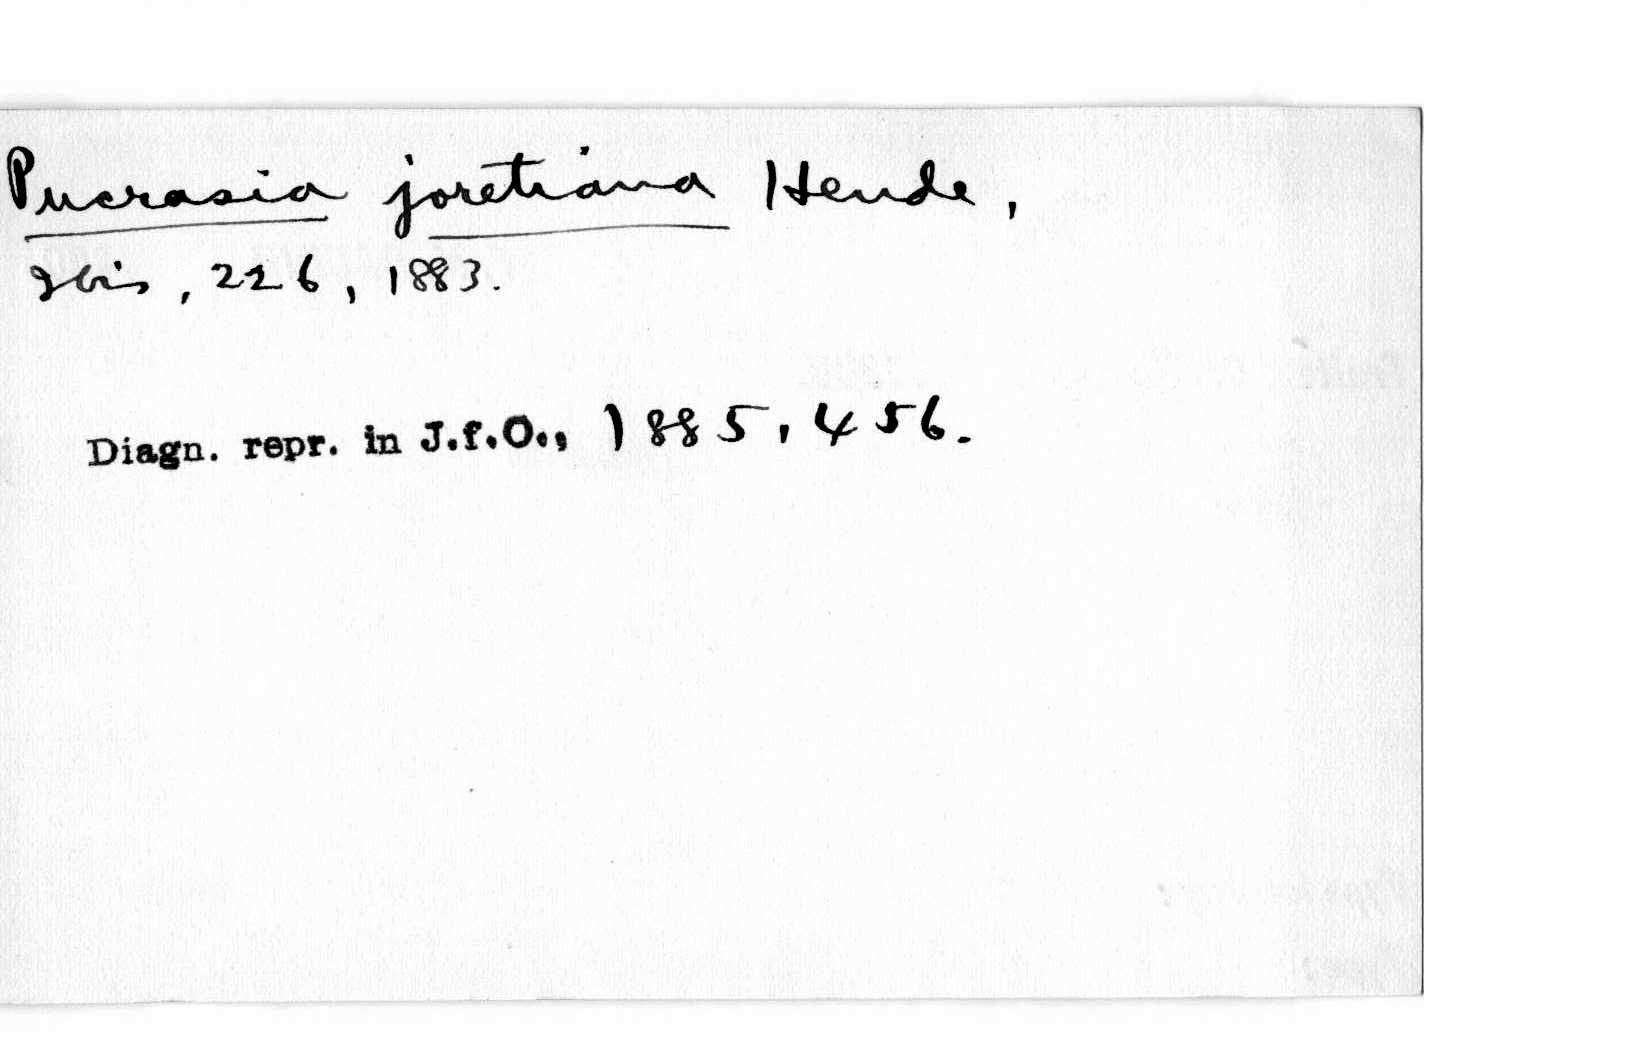 Pucrasia joretiana Heude,
Ibis, 226, 1883.
Diagn. repr. in J.f.O., 1885, 456.